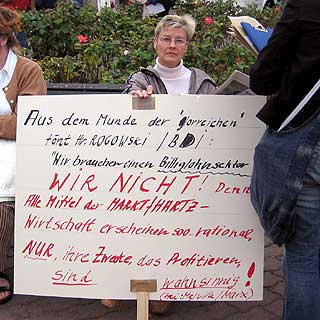 Aus dem Munde der "Glorreichen"
tönt Hr. ROGOWSKI / BDI:
"Wir brauchen einen Billiglohnsektor
WIR NICHT! Denn:
Alle Mittel der MARKT/HARTZ-
Wirtschaft erscheinen soo rational,
NUR, ihre Zwecke, das Profitieren,
sind wahnsinnig!
(frei Melville/Marx)